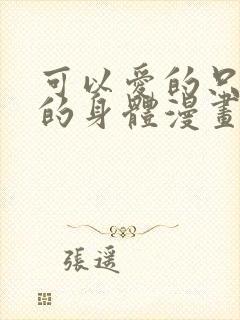 可以愛的只
的身體漫畫
張遥